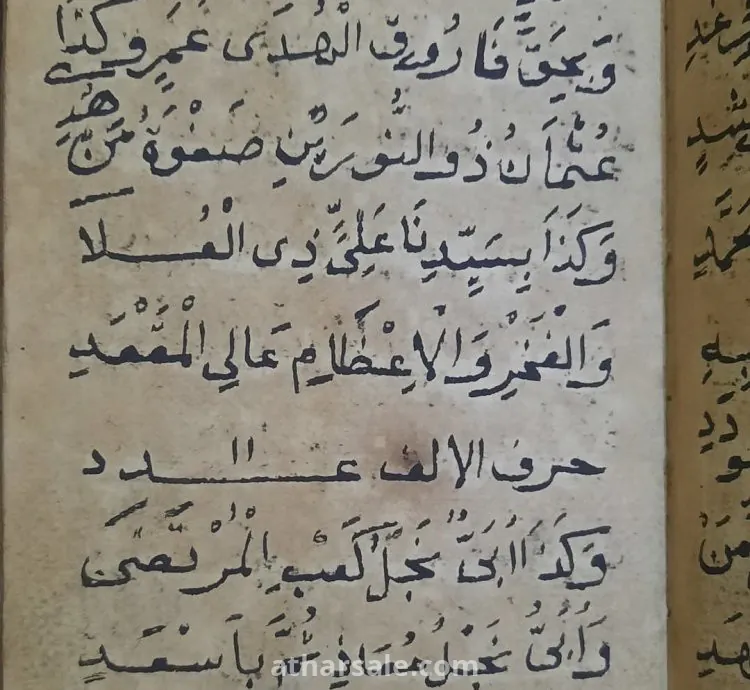 وَبِحَقِّ فَارُوقِ الْهُدَى عُمَرٍ وَكَذَا
عُثْمَانُ ذُو النُّورَيْنِ صَفْوَةُ مَنْ هُدِ
وَكَذَا بِسَيِّدِنَا عَلِيٍّ ذِى الْعُلَا
وَالْفَخْرِ وَالْاِعْظَامِ عَالِي الْمَقْعَدِ
حرف الالف عدد
وَكَذَا اُبَىُّ نَجْلُ كَعْبِ الْمُرْتَضَى
وَاُبَىُّ نَجْلُ مُعَاذِ ثُمَّ بِاَسْعَدِ
atharsale.com